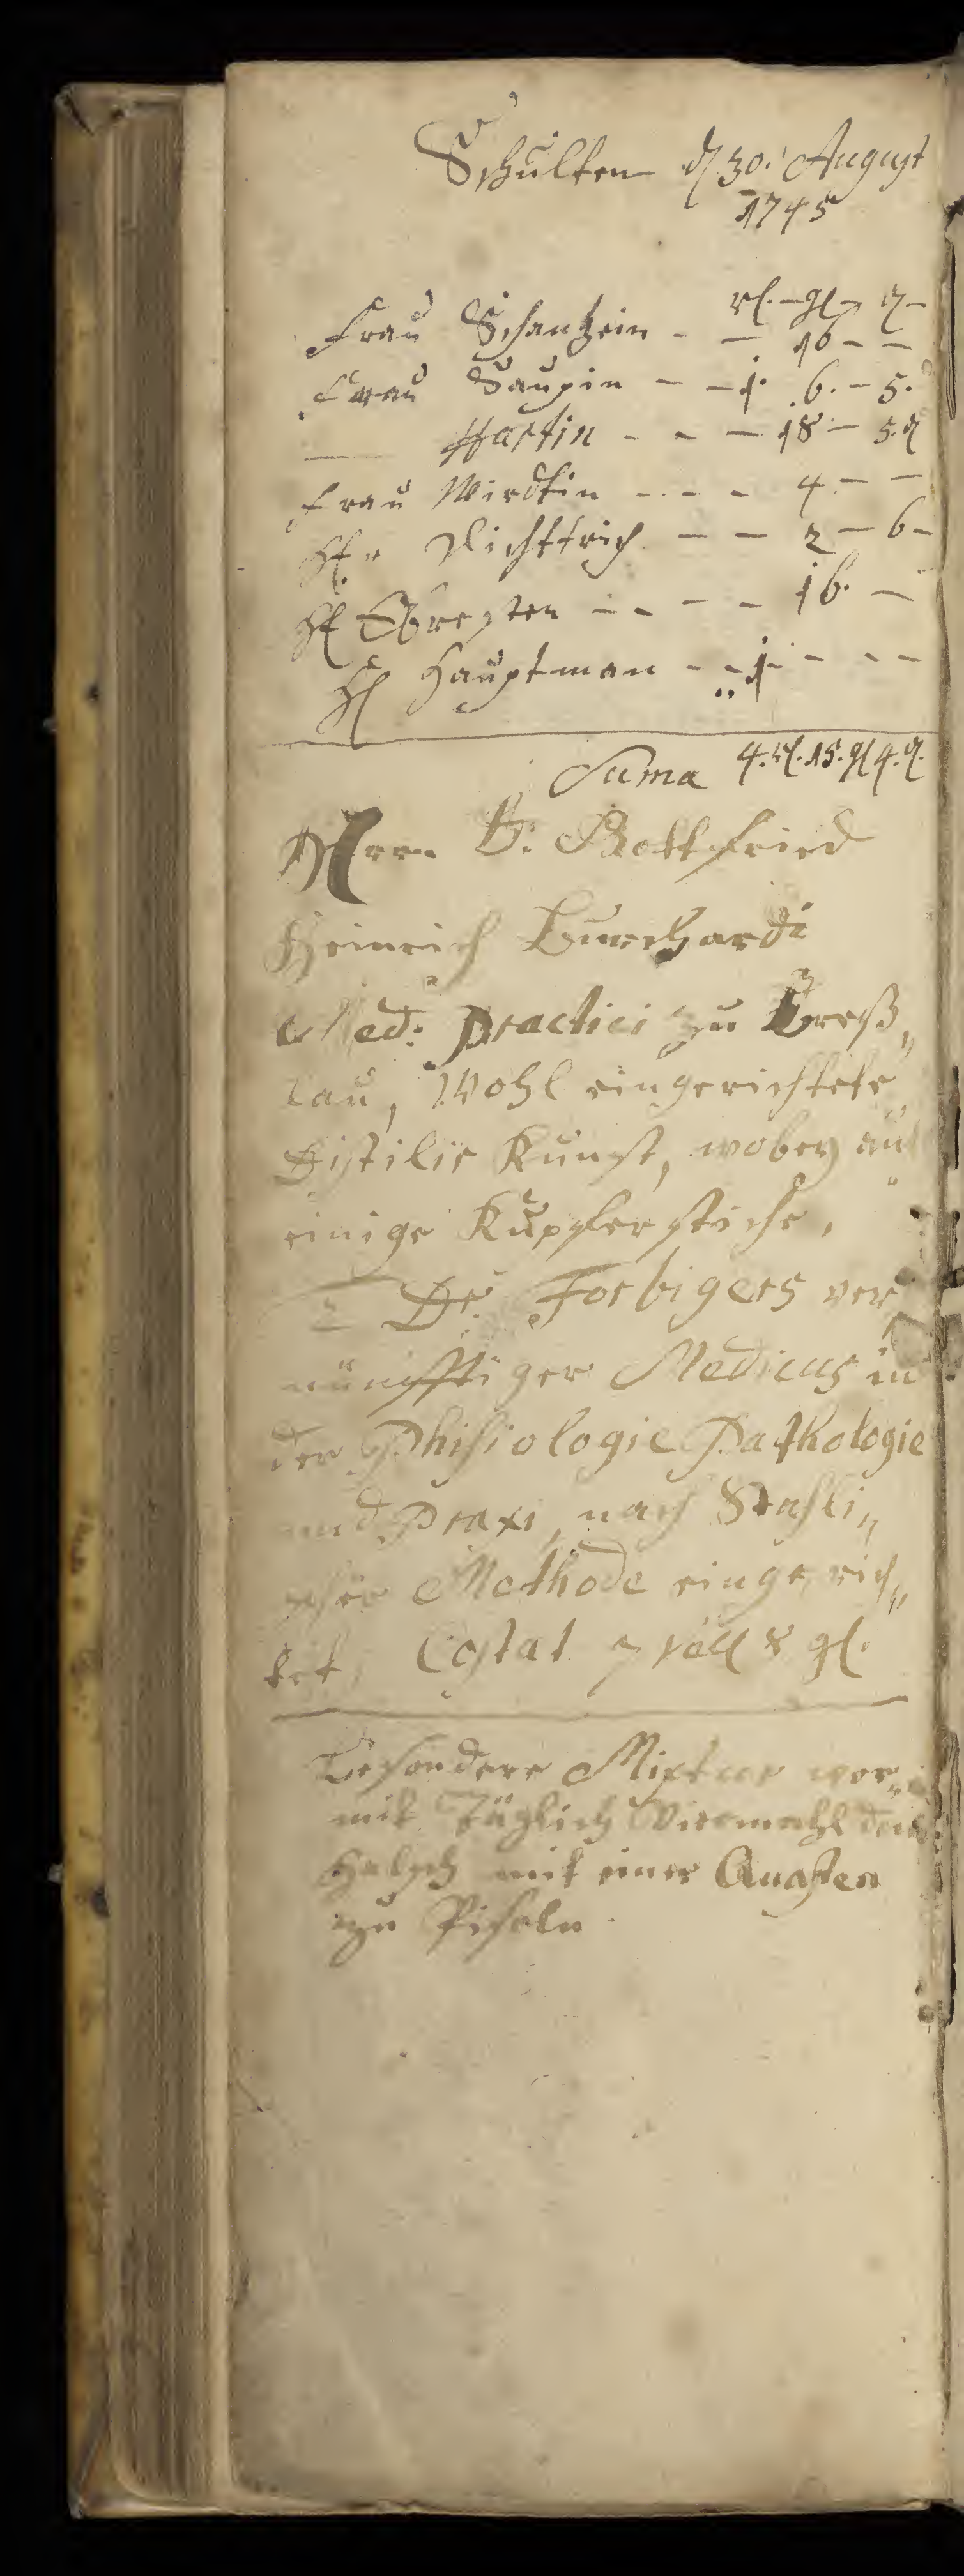 Schulten d 30. August
1745
rl. – gl – d –
Frau Schanzein - — 16 – –
Frau Saupin – – 1. 6. – 5.
— Hartin - - – 18 – 5. d
Frau Wirdtin - - - - 4 – –
H. r Dichttrich. – – 2 – 6 –
H Obresten - - – - 16. –
H Hauptman - - 1 - - -
Suma 4. rl. 15. gl 4. d.
Herrn D. Gottfried
Heinrich Burghardi
Med: Practici zu Breß„
lau, Wohl eingerichtete
Distilir Kunst, wobey
einige Kupferstiche.
2 Dr. Forbigers ver
nünfftiger Medicus in
der Phisiologie Pathologie
und Praxi, nach Stahli„
scher Methode eingerich„
tet, Costat 8 gl.
Besondere Mixtur wor„
mit Täglich Viermahl den
Halß mit einer
zu Piseln.